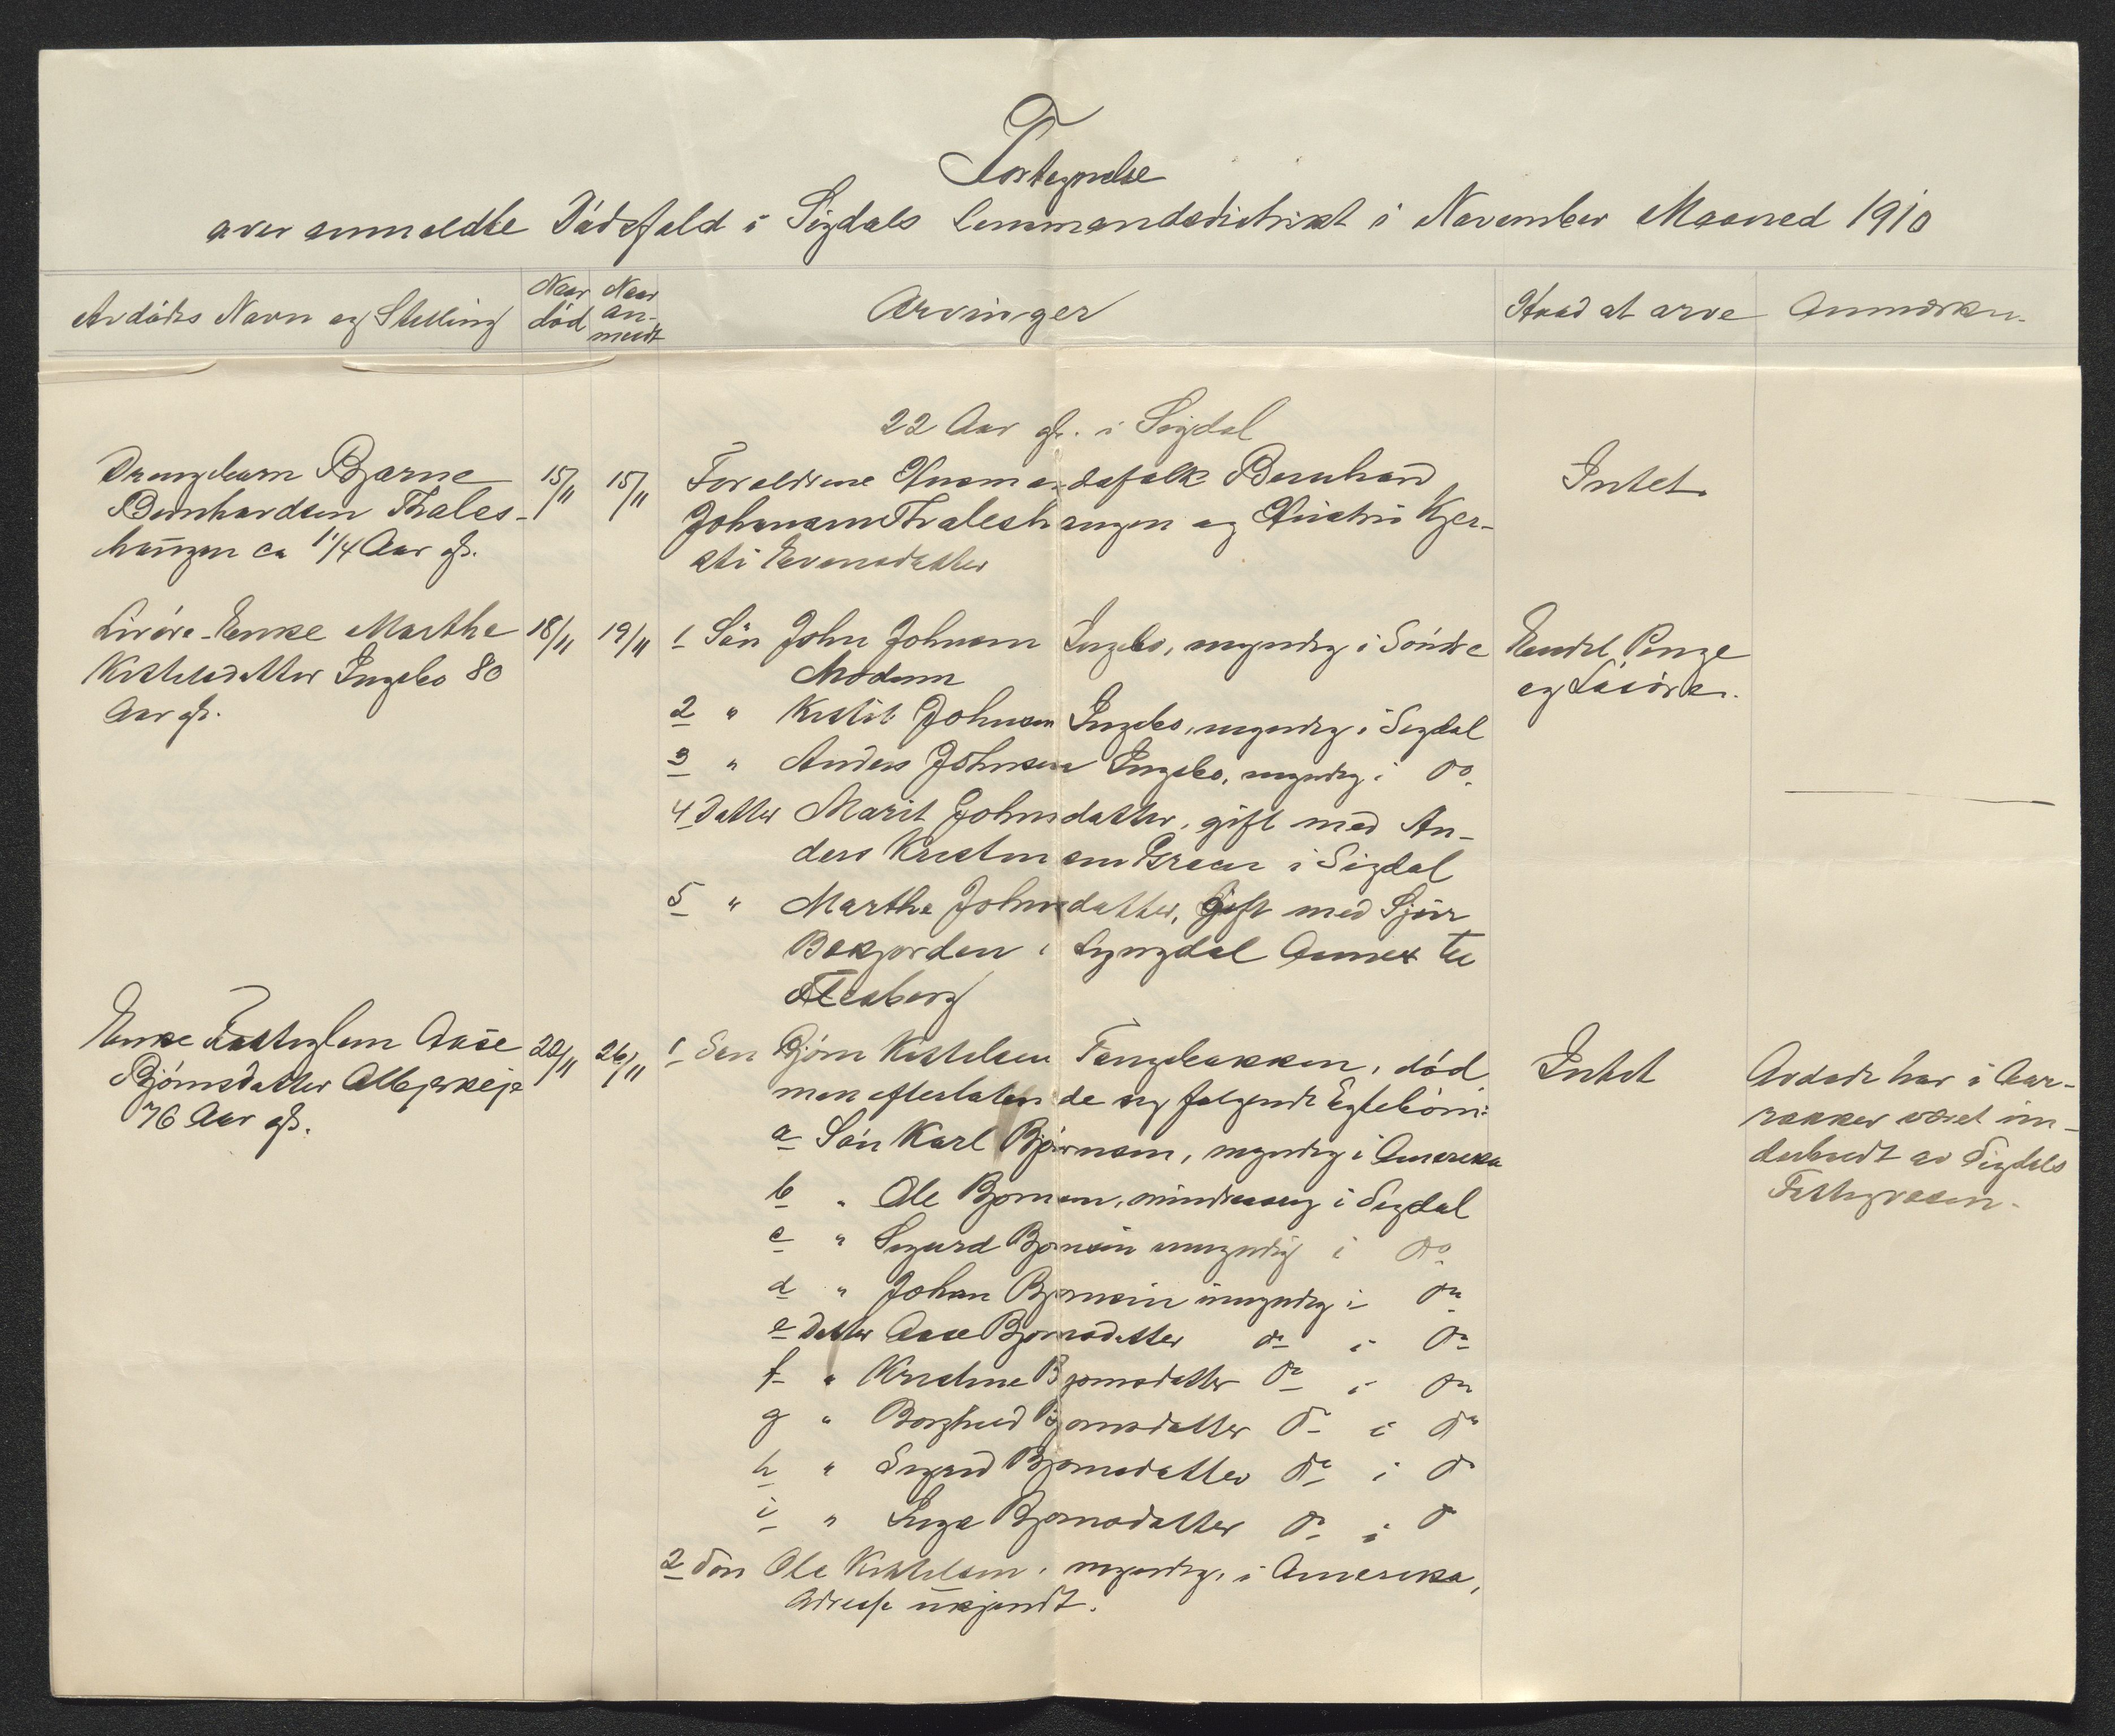 Fortegnelse
over anmeldte Dödsfald i Sigdals Lensmandsdistrikt i November Maaned 1910
Avdödes Navn og Stilling
Naar död
Naar an-
meldt
Arvinger
Hvad at arve
Anmærkn.
22 Aar gl. i Sigdal
Drengebarn Bjarne
Bernhardsen Thales-
haugen ca 1 1/4 Aar gl.
15/11
15/11
Forældrene Husmandsfolk Bernhard
Johansen Thaleshaugen og Hustru Kjer-
sti Evensdatter
Intet.
Livöre-Enke Marthe
Kittelsdatter Ingebo 80
Aar gl.
18/11
19/11
1 Sön John Johnsen Ingebo, myndig i Söndre
Modum
2 " Kittil Johnsen Ingebo, myndig i Sigdal
3 " Anders Johnsen Ingebo, myndig i do.
4 Datter Marit Johnsdatter, gift med An-
ders Kristensen Braar i Sigdal
5 " Marthe Johnsdatter, Gift med Sjur
Bekjorden i Lyngdal Annex til
Flesberg
Endel Penge
og Lösöre.
Enke Fattiglem Aase
Björnsdatter Albjerkeje
76 Aar gl.
20/11
26/11
1 Sön Björn Kittelsen Tangebakken, död
men efterlatende sig følgende Egtebörn:
a Sön Karl Björnsen, myndig i Amerika
b " Ole Bjornsen, mindreaarig i Sigdal
c " Sigurd Bjornsen umyndig i do.
d " Johan Bjornsen umyndig i do
e Datter Aase Bjornsdatter do i do
f " Kristine Bjornsdatter do i do
g " Borghild Bjornsdatter do i do
h " Sigrid Bjornsdatter do i do
i " Inga Bjornsdatter do i do
2 Sön Ole Kittelsen, myndig, i Amerika,
Adresse ukjendt.
Intet
Avdöde har i Aar-
rækker været un-
derholdt av Sigdals
Fattigvæsen.